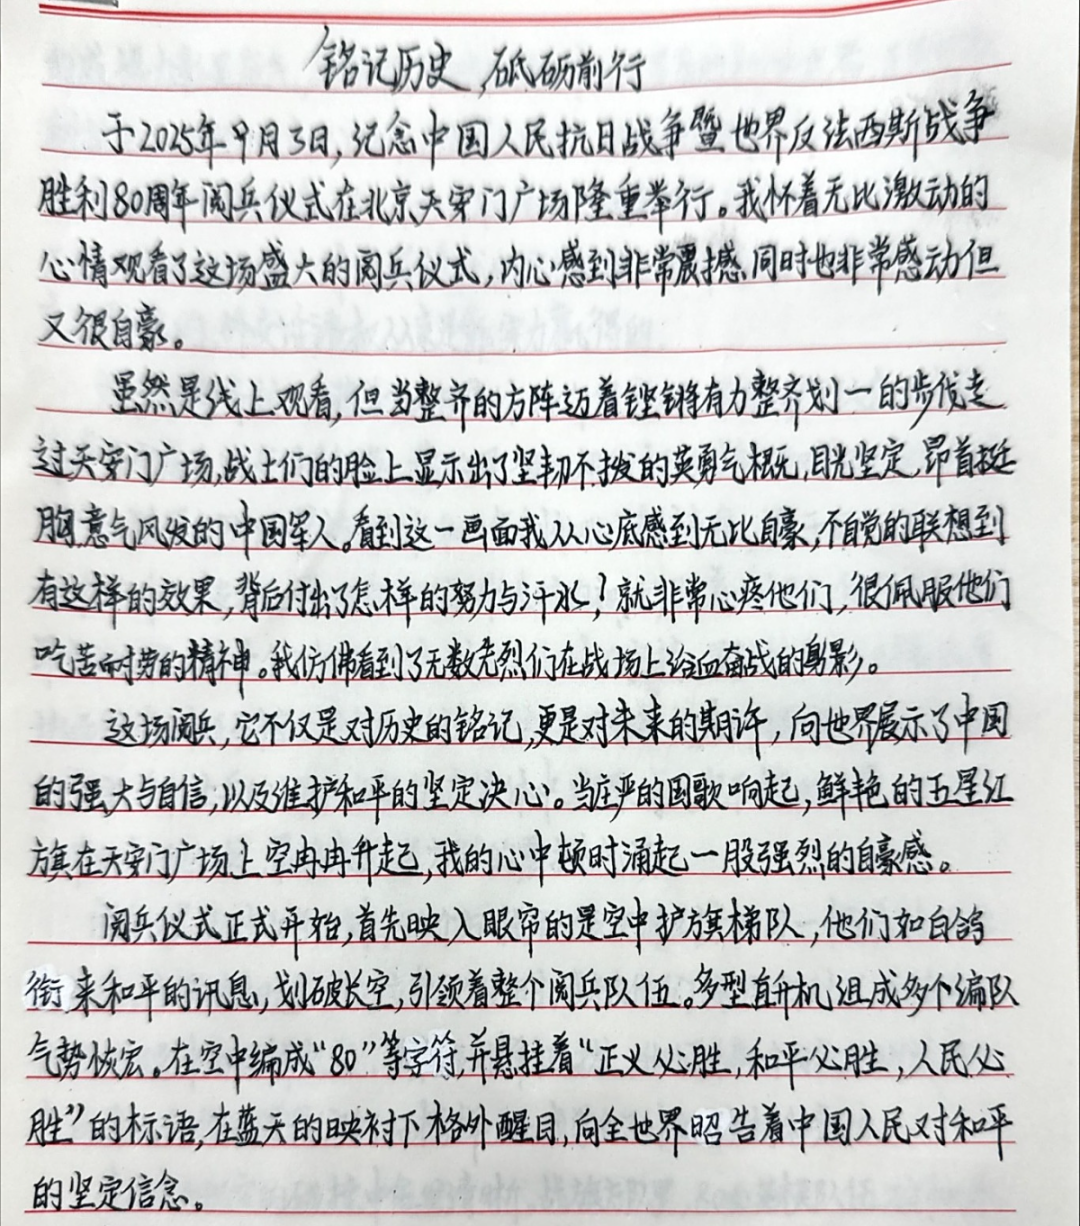 铭记历史,砥砺前行
于2025年9月3日,纪念中国人民抗日战争暨世界反法西斯战争
胜利80周年阅兵仪式在北京天安门广场隆重举行。我怀着无比激动的
心情观看了这场盛大的阅兵仪式,内心感到非常震撼,同时也非常感动但
又很自豪。
虽然是线上观看,但当整齐的方阵迈着铿锵有力整齐划一的步伐走
过天安门广场,战士们的脸上显示出了坚韧不拔的英勇气概,目光坚定,昂首挺
胸,意气风发的中国军人。看到这一画面我从心底感到无比自豪,不自觉的联想到
有这样的效果,背后付出了怎样的努力与汗水,就非常心疼他们,很佩服他们
吃苦耐劳的精神。我仿佛看到了无数先烈们在战场上浴血奋战的身影。
这场阅兵,它不仅是对历史的铭记,更是对未来的期许,向世界展示了中国
的强大与自信,以及维护和平的坚定决心。当庄严的国歌响起,鲜艳的五星红
旗在天安门广场上空冉冉升起,我的心中顿时涌起一股强烈的自豪感。
阅兵仪式正式开始,首先映入眼帘的是空中护旗梯队,他们如白鸽
衔来和平的讯息,划破长空,引领着整个阅兵队伍。多型直升机组成多个编队
气势恢宏。在空中编成“80”等字符,并悬挂着“正义必胜,和平必胜,人民必
胜”的标语,在蓝天的映衬下格外醒目,向全世界昭告着中国人民对和平
的坚定信念。